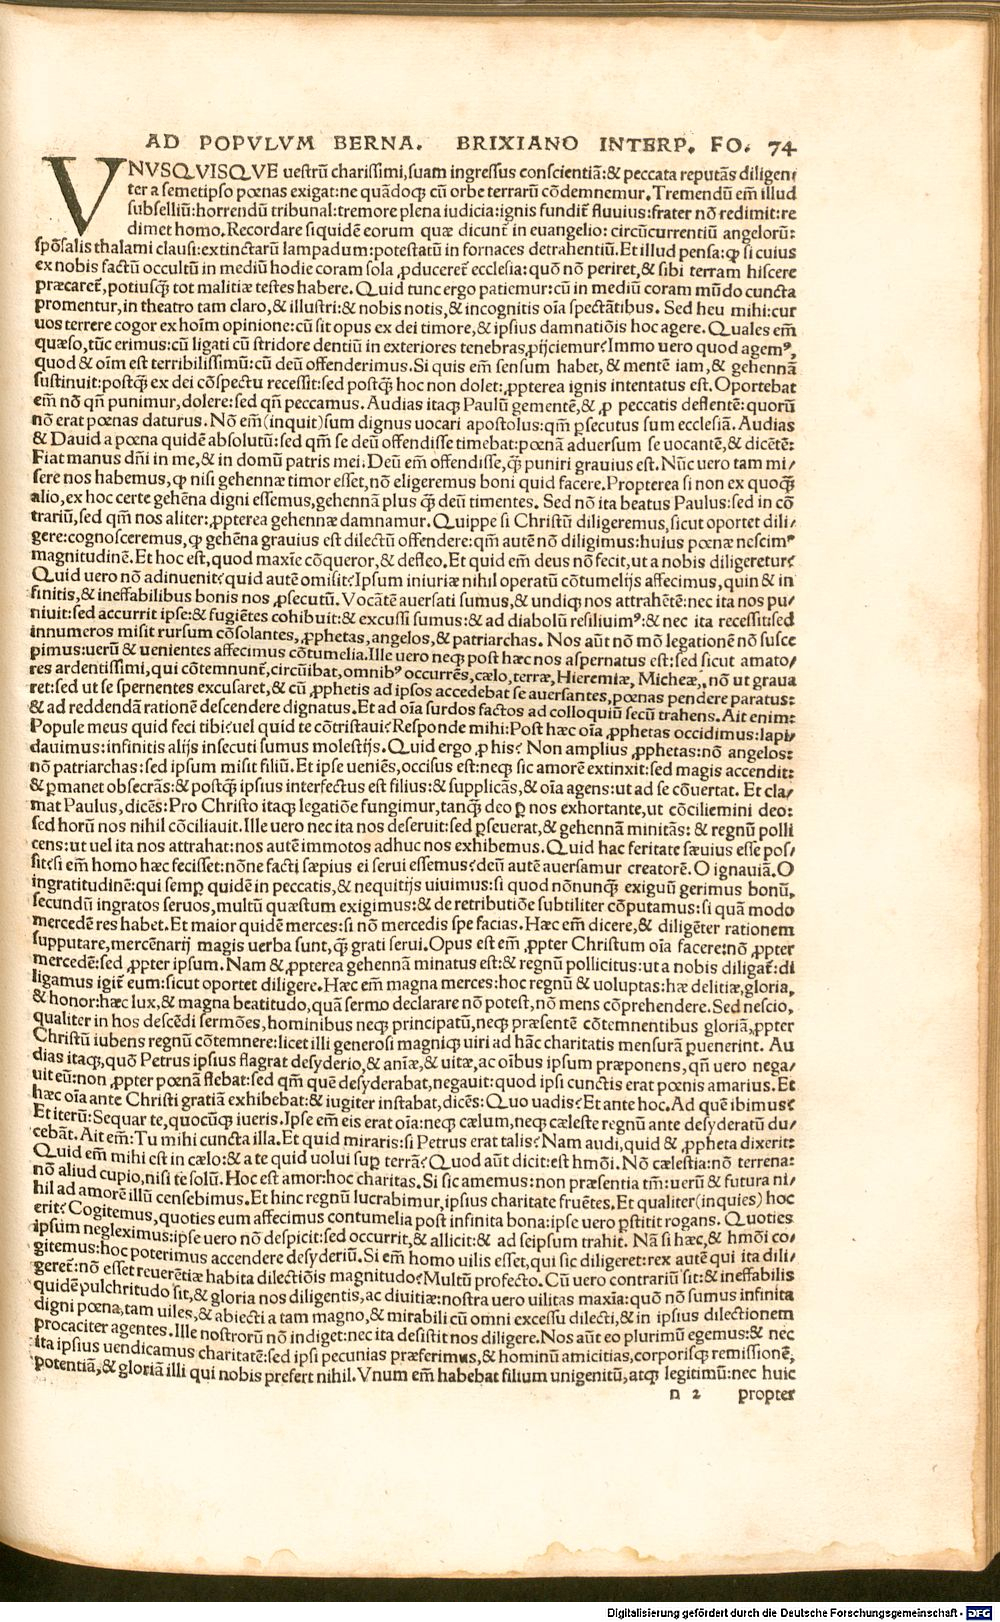 AD POPVLVM BERNA. BRIXIANO INTERP. FO. 74
VNVSQVISQVE uestrū charissimi,suam ingressus conscientiā:& peccata reputās diligen
ter a semetipso pœnas exigat:ne quādoq; cū orbe terrarū cōdemnemur.Tremendū em̄ illud
subselliū:horrendū tribunal:tremore plena iudicia:ignis fundit̄ fluuius:frater nō redimit:re
dimet homo.Recordare siquidē eorum quæ dicunt̄ in euangelio: circūcurrentiū angelorū:
spōsalis thalami clausi:extinctarū lampadum:potestatū in fornaces detrahentiū.Et illud pensa:ꝙ si cuius
ex nobis factū occultū in mediū hodie coram sola ꝓduceret̄ ecclesia:quō nō periret,& sibi terram hiscere
præcaret̄,potiusq̄; tot malitiæ testes habere.Quid tunc ergo patiemur:cū in mediū coram mūdo cuncta
promentur,in theatro tam claro,& illustri:& nobis notis,& incognitis oīa spectātibus. Sed heu mihi:cur
uos terrere cogor ex hoīm opinione:cū sit opus ex dei timore,& ipsius damnatiōis hoc agere.Quales em̄
quæso,tūc erimus:cū ligati cū stridore dentiū in exteriores tenebras,ꝓijciemur?Immo uero quod agemꝰ,
quod & oīm est terribilissimū:cū deū offenderimus.Si quis em̄ sensum habet,& mentē iam,& gehennā
sustinuit:postq̄; ex dei cōspectu recessit:sed postq̄; hoc non dolet:ꝓpterea ignis intentatus est.Oportebat
em̄ nō qn̄ punimur,dolere:sed qn̄ peccamus.Audias itaq; Paulū gementē,& ꝓ peccatis deflentē:quorū
nō erat pœnas daturus.Nō em̄(inquit)sum dignus uocari apostolus:qm̄ ꝑsecutus sum ecclesiā.Audias
& Dauid a pœna quidē absolutū:sed qm̄ se deū offendisse timebat:pœnā aduersum se uocantē,& dicētē:
Fiat manus dn̄i in me,& in domū patris mei.Deū em̄ offendisse,q̄; puniri grauius est.Nūc uero tam mi/
sere nos habemus,ꝙ nisi gehennæ timor esset,nō eligeremus boni quid facere.Propterea si non ex quoq̄;
alio,ex hoc certe gehēna digni essemus,gehennā plus q̄; deū timentes. Sed nō ita beatus Paulus:sed in cō
trariū,sed qm̄ nos aliter:ꝓpterea gehennæ damnamur.Quippe si Christū diligeremus,sicut oportet dili/
gere:cognosceremus,ꝙ gehēna grauius est dilectū offendere:qm̄ autē nō diligimus:huius pœnæ nescimꝰ
magnitudinē.Et hoc est,quod maxīe cōqueror,& defleo.Et quid em̄ deus nō fecit,ut a nobis diligeretur?
Quid uero nō adinuenit?quid autē omisit?Ipsum iniuriæ nihil operatū cōtumelijs affecimus,quin & in
finitis,& ineffabilibus bonis nos ꝓsecutū.Vocātē auersati sumus,& undiq; nos attrahētē:nec ita nos pu/
niuit:sed accurrit ipse:& fugiētes cohibuit:& excussi sumus:& ad diabolū resiliuimꝰ:& nec ita recessit:sed
innumeros misit rursum cōsolantes,ꝓphetas,angelos,& patriarchas. Nos aūt nō mō legationē nō susce
pimus:uerū & uenientes affecimus cōtumelia.Ille uero neq; post hæc nos aspernatus est:sed sicut amato/
res ardentissimi,qui cōtemnunt̄,circūibat,omnibꝰ occurrēs,cælo,terræ,Hieremiæ, Micheæ,nō ut graua
ret:sed ut se spernentes excusaret,& cū ꝓphetis ad ipsos accedebat se auersantes,pœnas pendere paratus:
& ad reddendā rationē descendere dignatus.Et ad oīa surdos factos ad colloquiū secū trahens.Ait enim:
Popule meus quid feci tibi?uel quid te cōtristaui?Responde mihi:Post hæc oīa ꝓphetas occidimus:lapi/
dauimus:infinitis alijs insecuti sumus molestijs.Quid ergo ꝓ his? Non amplius ꝓphetas:nō angelos:
nō patriarchas:sed ipsum misit filiū.Et ipse ueniēs,occisus est:neq; sic amorē extinxit:sed magis accendit:
& ꝑmanet obsecrās:& postq̄; ipsius interfectus est filius:& supplicās,& oīa agens:ut ad se cōuertat. Et cla/
mat Paulus,dicēs:Pro Christo itaq; legatiōe fungimur,tanq̄; deo ꝑ nos exhortante,ut cōciliemini deo:
sed horū nos nihil cōciliauit.Ille uero nec ita nos deseruit:sed ꝑseuerat,& gehennā minitās: & regnū polli
cens:ut uel ita nos attrahat:nos autē immotos adhuc nos exhibemus.Quid hac feritate sæuius esse pos/
sit?si em̄ homo hæc fecisset:nōne facti sæpius ei serui essemus?deū autē auersamur creatorē.O ignauiā.O
ingratitudinē:qui semꝑ quidē in peccatis,& nequitijs uiuimus:si quod nōnunq̄; exiguū gerimus bonū,
secundū ingratos seruos,multū quæstum exigimus:& de retributiōe subtiliter cōputamus:si quā modo
mercedē res habet.Et maior quidē merces:si nō mercedis spe facias. Hæc em̄ dicere,& diligēter rationem
supputare,mercēnarij magis uerba sunt,q̄; grati serui.Opus est em̄ ꝓpter Christum oīa facere:nō ꝓpter
mercedē:sed ꝓpter ipsum. Nam & ꝓpterea gehennā minatus est:& regnū pollicitus:ut a nobis diligat̄:di
ligamus igit̄ eum:sicut oportet diligere.Hæc em̄ magna merces:hoc regnū & uoluptas:hæ delitiæ,gloria,
& honor:hæc lux,& magna beatitudo,quā sermo declarare nō potest,nō mens cōprehendere.Sed nescio,
qualiter in hos descēdi sermōes,hominibus neq; principatū,neq; præsentē cōtemnentibus gloriā,ꝓpter
Christū iubens regnū cōtemnere:licet illi generosi magniq; uiri ad hāc charitatis mensurā ꝑuenerint. Au
dias itaq;,quō Petrus ipsius flagrat desyderio,& anīæ,& uitæ,ac oībus ipsum præponens,qn̄ uero nega/
uit eū:non ꝓpter pœnā flebat:sed qm̄ quē desyderabat,negauit:quod ipsi cunctis erat pœnis amarius. Et
hæc oīa ante Christi gratiā exhibebat:& iugiter instabat,dicēs:Quo uadis?Et ante hoc.Ad quē ibimus?
Et iterū:Sequar te,quocūq; iueris.Ipse em̄ eis erat oīa:neq; cælum,neq; cæleste regnū ante desyderatū du/
cebāt.Ait em̄:Tu mihi cuncta illa.Et quid miraris:si Petrus erat talis?Nam audi,quid & ꝓpheta dixerit:
Quid em̄ mihi est in cælo:& a te quid uolui suꝑ terrā?Quod aūt dicit:est hm̄oi. Nō cælestia:nō terrena:
nō aliud cupio,nisi te solū.Hoc est amor:hoc charitas.Si sic amemus:non præsentia tm̄:uerū & futura ni/
hil ad amorē illū censebimus.Et hinc regnū lucrabimur,ipsius charitate fruētes.Et qualiter(inquies) hoc
erit?Cogitemus,quoties eum affecimus contumelia post infinita bona:ipse uero ꝑstitit rogans. Quoties
ipsum negleximus:ipse uero nō despicit:sed occurrit,& allicit:& ad seipsum trahit. Nā si hæc,& hm̄oi co/
gitemus:hoc poterimus accendere desyderiū.Si em̄ homo uilis esset,qui sic diligeret:rex autē qui ita dili/
geret̄:nō esset reuerētiæ habita dilectiōis magnitudo?Multū profecto.Cū uero contrariū sit:& ineffabilis
quidē pulchritudo sit,& gloria nos diligentis,ac diuitiæ:nostra uero uilitas maxīa:quō nō sumus infinita
digni pœna,tam uiles,& abiecti a tam magno,& mirabili cū omni excessu dilecti,& in ipsius dilectionem
procaciter agentes.Ille nostrorū nō indiget:nec ita desistit nos diligere.Nos aūt eo plurimū egemus:& nec
ita ipsius uendicamus charitatē:sed ipsi pecunias præferimus,& hominū amicitias,corporisq; remissionē,
potentiā,& gloriā illi qui nobis prefert nihil.Vnum em̄ habebat filium unigenitū,atq; legitimū:nec huic
n 2 propter
Digitalisierung gefördert durch die Deutsche Forschungsgemeinschaft - DFG